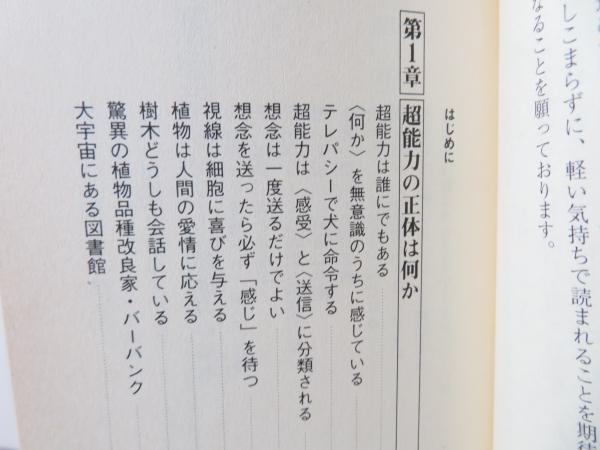 しこまらずに、軽い気持ちで読まれることを期待
なることを願っております。
はじめに
第1章 超能力の正体は何か
超能力は誰にでもある
〈何か〉を無意識のうちに感じている
テレパシーで犬に命令する
超能力は〈感受〉と〈送信〉に分類される
想念は一度送るだけでよい
想念を送ったら必ず「感じ」を待つ
視線は細胞に喜びを与える
植物は人間の愛情に応える
樹木どうしも会話している
驚異の植物品種改良家・バーバンク
大宇宙にある図書館